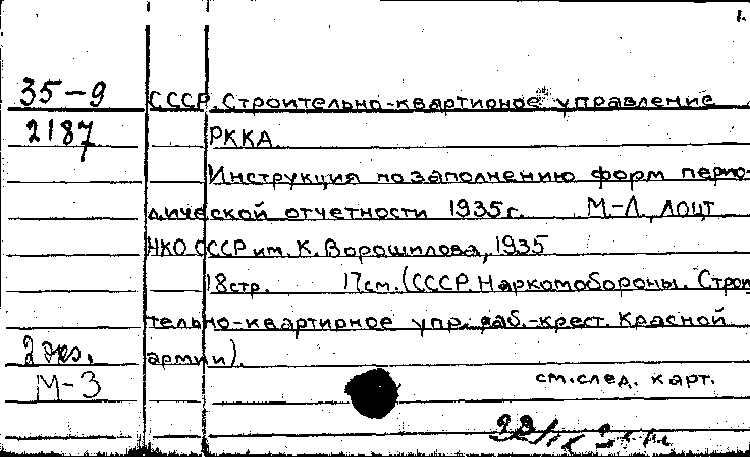 1.
35-9 СССР. Строительно-квартирное управление
2187 РККА.
Инструкция по заполнению форм перио-
дической отчетности 1935г. М.-Л., ЛОЦТ
НКО СССР им. К. Ворошилова, 1935
18стр. 17см. (СССР. Наркомобороны. Строи
тельно-квартирное упр. раб.-крест. Красной
2 экз. армии).
М-3 см. след. карт.